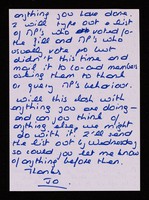 anything you have done.
I will type out a list
of MP's who voted for
the Bill and MP's who
usually vote po but
didn't this time and
mail it to co-ord members
asking them to thank
or query MP's behaviour.
Will this clash with
anything you are doing -
and can you think of
anything else we might
do with it? I'll send
the list out by Wednesday
so could you let me know
of anything before then.
Thanks
Jo